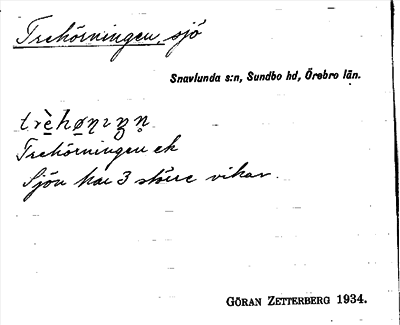 Trehörningen, sjö
Snavlunda s:n, Sundbo hd, Örebro län.
Trehörningen ek
Sjön har 3 större vikar.
GÖRAN ZETTERBERG 1934.